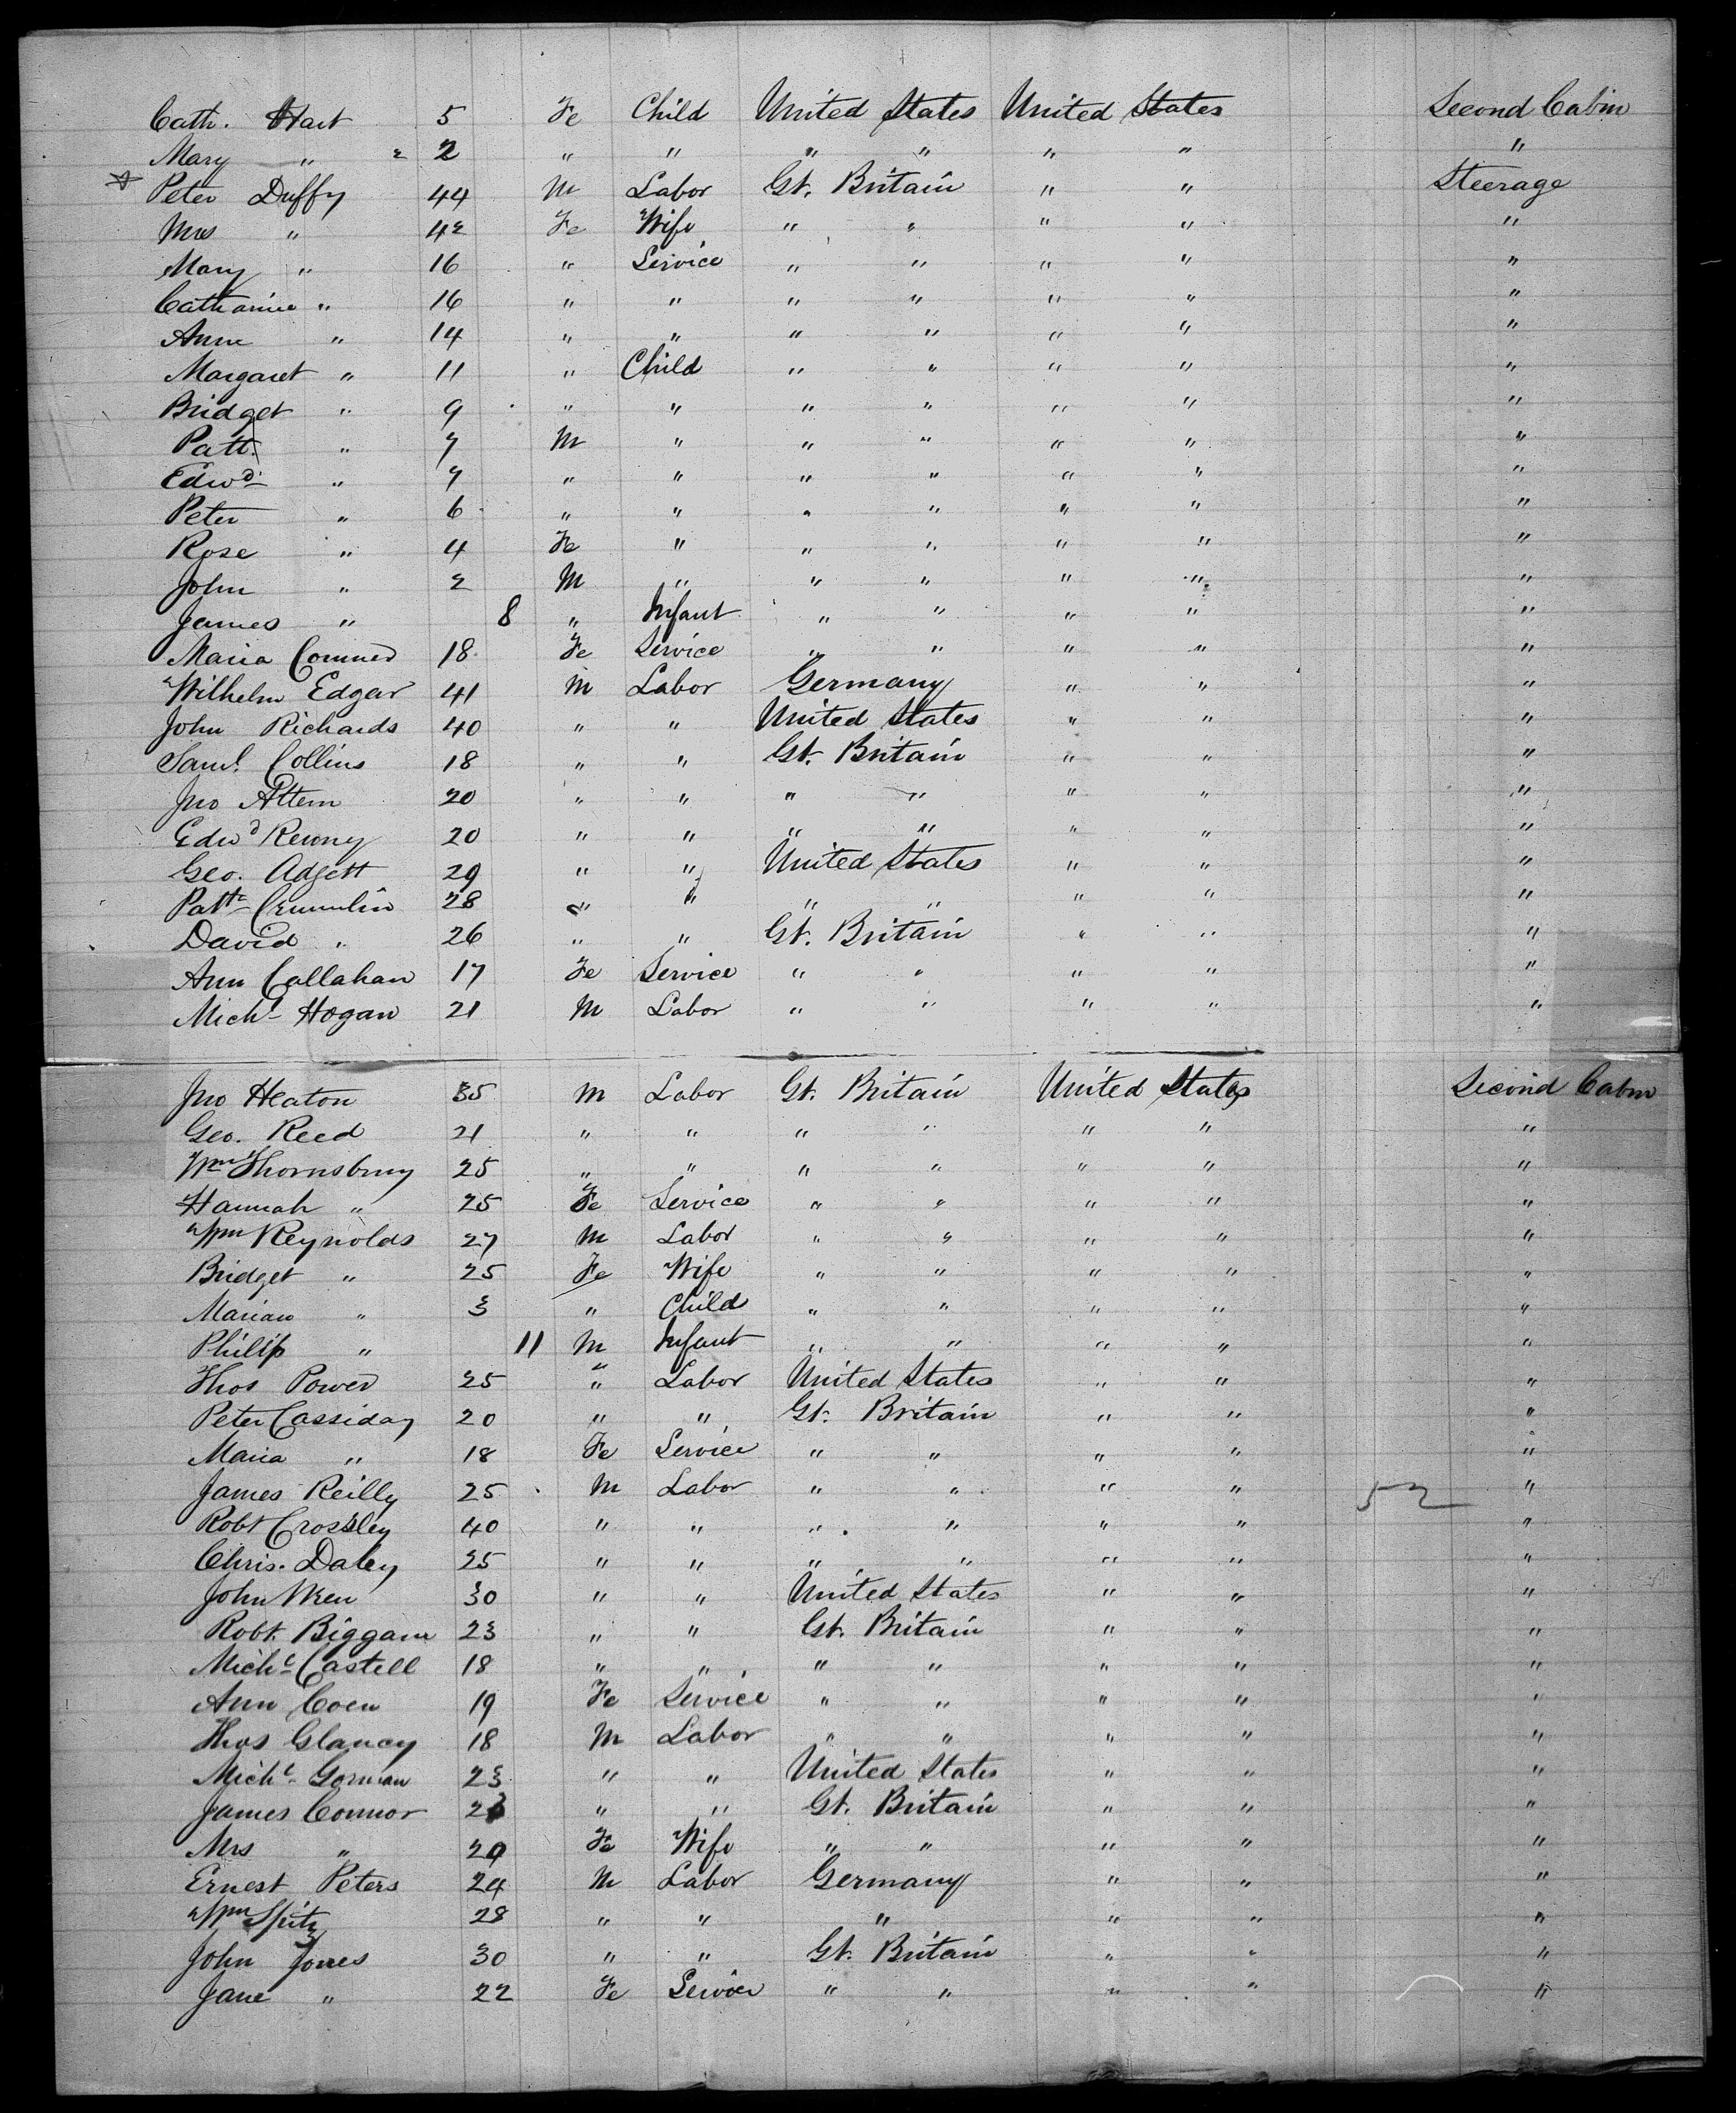 Cath. Hart 5 Fe Child United States United States Second Cabin
Mary " 2 " " " " " " "
Peter Duffy 44 M Labor Gt. Britain " " Steerage
Mrs " 42 Fe Wife " " " " "
Mary " 16 " Service " " " " "
Catharine " 16 " " " " " " "
Anne " 14 " " " " " " "
Margaret " 11 " Child " " " " "
Bridget " 9 " " " " " " "
Patt. " 7 M " " " " " "
Edwd. " 7 " " " " " " "
Peter " 6 " " " " " " "
Rose " 4 Fe " " " " " "
John " 2 M " " " " " "
James " 8 " Infant " " " " "
Maria 18 Fe Service " " " " "
Wilhelm Edgar 41 M Labor Germany " " "
John Richards 40 " " United States " " "
Saml. Collins 18 " " Gt. Britain " " "
Jno 20 " " " " " " "
Edwd 20 " " " " " " "
Geo. Adgett 29 " " United States " " "
Patk Crumlin 28 " " " " " " "
David " 26 " " Gt. Britain " " "
Ann Callahan 17 Fe Service " " " " "
Michl Hogan 21 M Labor " " " " "
Jno Heaton 35 M Labor Gt. Britain United States Second Cabin
Geo. Reed 21 " " " " " " "
Wm Thornsbury 25 " " " " " " "
Hannah " 25 Fe Service " " " " "
Wm Reynolds 27 M Labor " " " " "
Bridget " 25 Fe Wife " " " " "
Marian " 3 " Child " " " " "
Philip " 11 M Infant " " " " "
Thos Power 25 " Labor United States " " "
Peter Cassiday 20 " " Gt. Britain " " "
Maria " 18 Fe Service " " " " "
James Reilly 25 M Labor " " " " 52 "
Robt Crossley 40 " " " " " " "
Chris. Daley 25 " " " " " " "
John Wren 30 " " United States " " "
Robt. Biggam 23 " " Gt. Britain " " "
Michl Castell 18 " " " " " " "
Ann Coen 19 Fe Service " " " " "
Thos Glancy 18 M Labor " " " " "
Michl Gorman 23 " " United States " " "
James Connor 23 " " Gt. Britain " " "
Mrs " 20 Fe Wife " " " " "
Ernest Peters 24 M Labor Germany " " "
Wm Speitz 28 " " " " " "
John Jones 30 " " Gt. Britain " " "
Jane " 22 Fe Service " " " " "